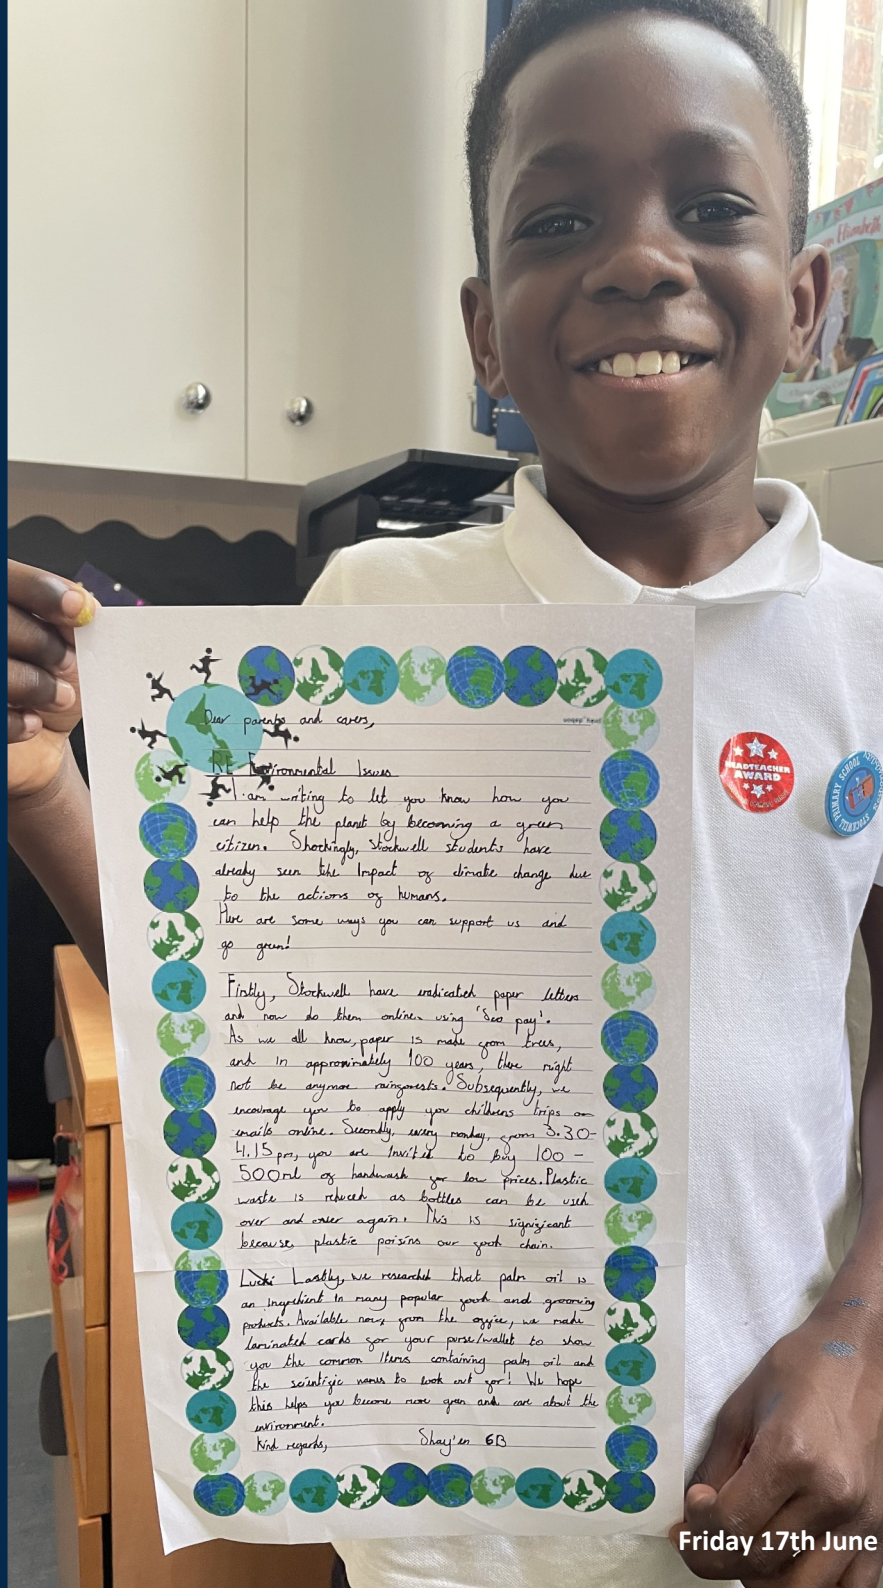 Dear parents and carers,
RE Environmental Issues
I am writing to let you know how you
can help the planet by becoming a green
citizen. Shockingly, Stockwell students have
already seen the Impact of climate change due
to the actions of humans.
Here are some ways you can support us and
go green!
Firstly, Stockwell have eradicated paper letters
and now do them online using 'Sco pay'.
As we all know, paper is made from trees,
and in approximately 100 years, there might
not be anymore rainforests. Subsequently, we
encourage you to apply you childrens trips or
emails online. Secondly, every monday, from 3.30-
4.15pm, you are Invited to buy 100 -
500ml of handwash for low prices. Plastic
waste is reduced as bottles can be used
over and over again. This is significant
because plastic poisins our food chain.
Lastly, we researched that palm oil is
an ingredient in many popular food and grooming
products. Available now from the office, we made
laminated cards for your purse/wallet to show
you the common Items containing palm oil and
the scientific names to look out for! We hope
this helps you become more green and care about the
environment.
Kind regards, Shay'en 6B
HEADTEACHER
AWARD
STOCKWELL PRIMARY SCHOOL
Elizabeth
Friday 17th June